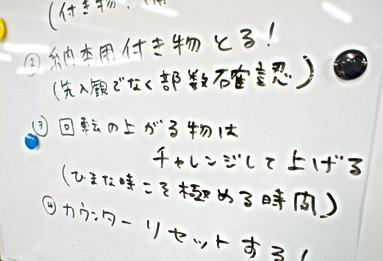 (付き物
② 納本用付き物とる！
(先入観でなく部数確認)
③ 回転の上がる物は
チャレンジして上げる
(ひまな時こそ極める時間)
④ カウンターリセットする！